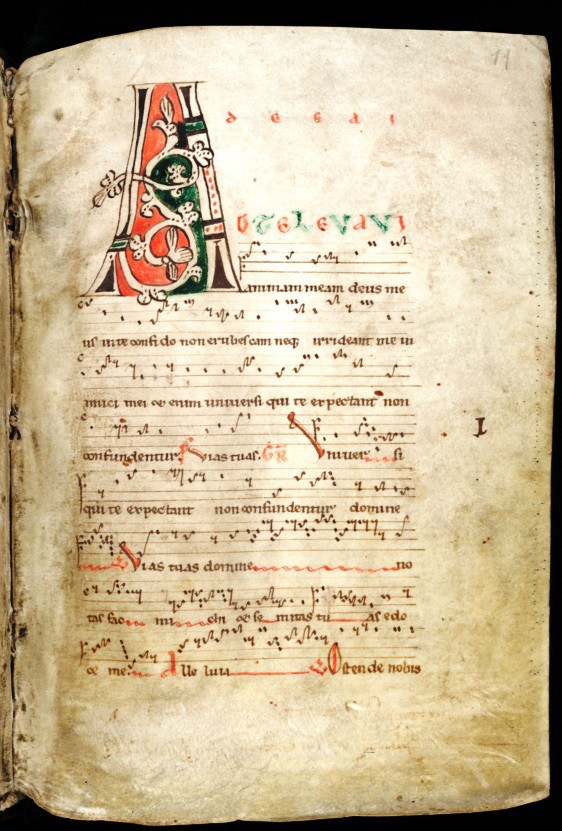 11
A D TE LEVAVI
animam meam deus me
us in te confido non erubescam neq; irrideant me ini
mici mei &enim uniuersi qui te expectant non
confundentur. Vias tuas. GR Vniuersi
qui te expectant non confundentur domine
Vias tuas domine no
tas fac mi chi & semitas tuas edo
ce me. Alle luia Ostende nobis
I